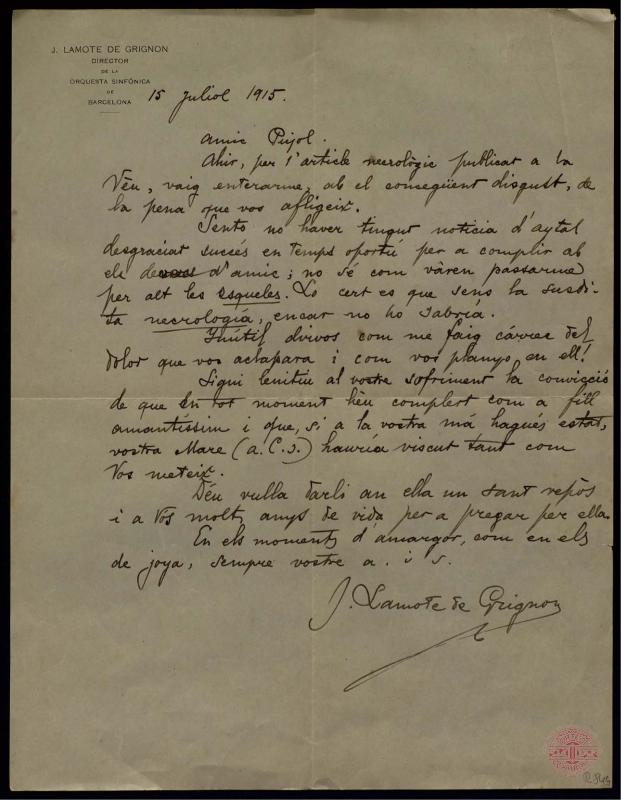 J. LAMOTE DE GRIGNON
DIRECTOR
DE LA
ORQUESTA SINFÓNICA
DE
BARCELONA
15 juliol 1915.
Amic Pujol.
Ahir, per l'article necrològic publicat a la
Vèu, vaig enterarme, ab el conseqüent disgust, de
la pena que vos afligeix.
Sento no haver tingut noticia d'aytal
desgraciat succés en temps oportú per a complir ab
els devers d'amic; no sé com vàren passarme
per alt les esqueles. Lo cert es que sens la susdi-
ta necrología, encar no ho sabría.
Inútil dirvos com me faig cárrec del
dolor que vos aclapara i com vos planyo en ell!
Sigui lenitiu al vostre sofriment la convicció
de que en tot moment hèu complert com a fill
amantíssim i que, si a la vostra má hagués estat,
vostra Mare (a. C. s.) hauría viscut tant com
Vos meteix.
Déu vulla darli an ella un sant repòs
i a Vos molts anys de vida per a pregar per ella.
En els moments d'amargor, com en els
de joya, sempre vostre a. i s.
J. Lamote de Grignon